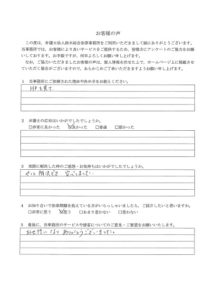 お客様の声
この度は、弁護士法人鈴木総合法律事務所をご利用いただきまして誠にありがとうございます。
当事務所では、お客様により良いサービスをご提供するため、皆様にアンケートのご協力をお願い
しております。お手数ですが、何卒よろしくお願い申し上げます。
なお、ご協力いただきましたお客様の声は、個人情報を伏せた上で、ホームページ上に掲載させ
ていただく場合がございますので、あらかじめご了承いただきますようお願い申し上げます。
1 当事務所にご依頼された理由や決め手をお教えください。
HPを見て
2 弁護士の応対はいかがでしたでしょうか。
□非常に良かった ☑良かった □普通 □悪かった
3 実際に解決した時のご感想・お気持ちはいかがでしたでしょうか。
4 お知り合いで法律問題を抱えている方がいらっしゃいましたら、ご紹介したいと思いますか。
□非常に思う ☑思う □あまり思わない □思わない
5 当法律事務所のサービスや接客についてのご意見・ご要望をお願いいたします。
お世話になり ありがとうございました。